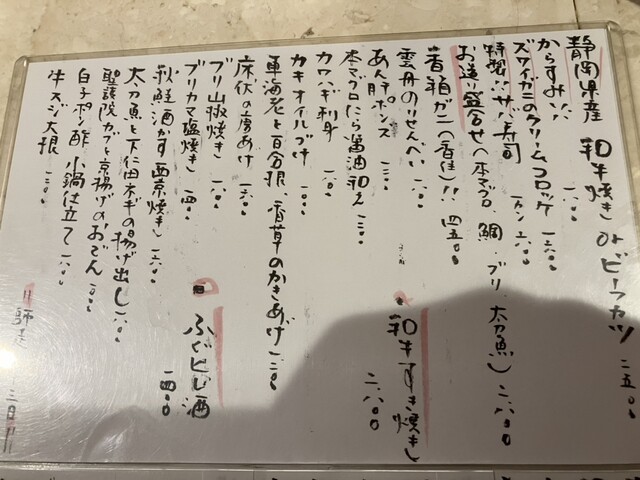 静岡県産 和牛焼き or ビーフカツ 二五〇〇
からすみ!! 一八〇〇
ズワイガニのクリームコロッケ 一六〇〇
特製!!サバ寿司 1カン 六〇〇
お造り盛合せ(本マグロ、鯛、ブリ、太刀魚) 二八〇〇
香箱ガニ(香住)!! 四五〇〇
雲丹のりせんべい 一二〇〇
あん肝ポンズ 一三〇〇
和牛すき焼き 二八〇〇
本マグロたら醤油和え 一三〇〇
カワハギ刺身 一八〇〇
カキオイルづけ 一〇〇〇
車海老と百合根、香草のかきあげ 一二〇〇
床伏の唐あげ 一六〇〇
ブリ山椒焼き 一八〇〇
ブリカマ塩焼き 一四〇〇
ふぐヒレ酒 一四〇〇
秋鮭酒かす西京焼き 一六〇〇
太刀魚と下仁田ネギの揚げ出し 一六〇〇
聖護院カブと京揚げのおでん 一二〇〇
白子ポン酢 小鍋仕立て 一八〇〇
牛スジ大根 一二〇〇
!!師走 三日!!